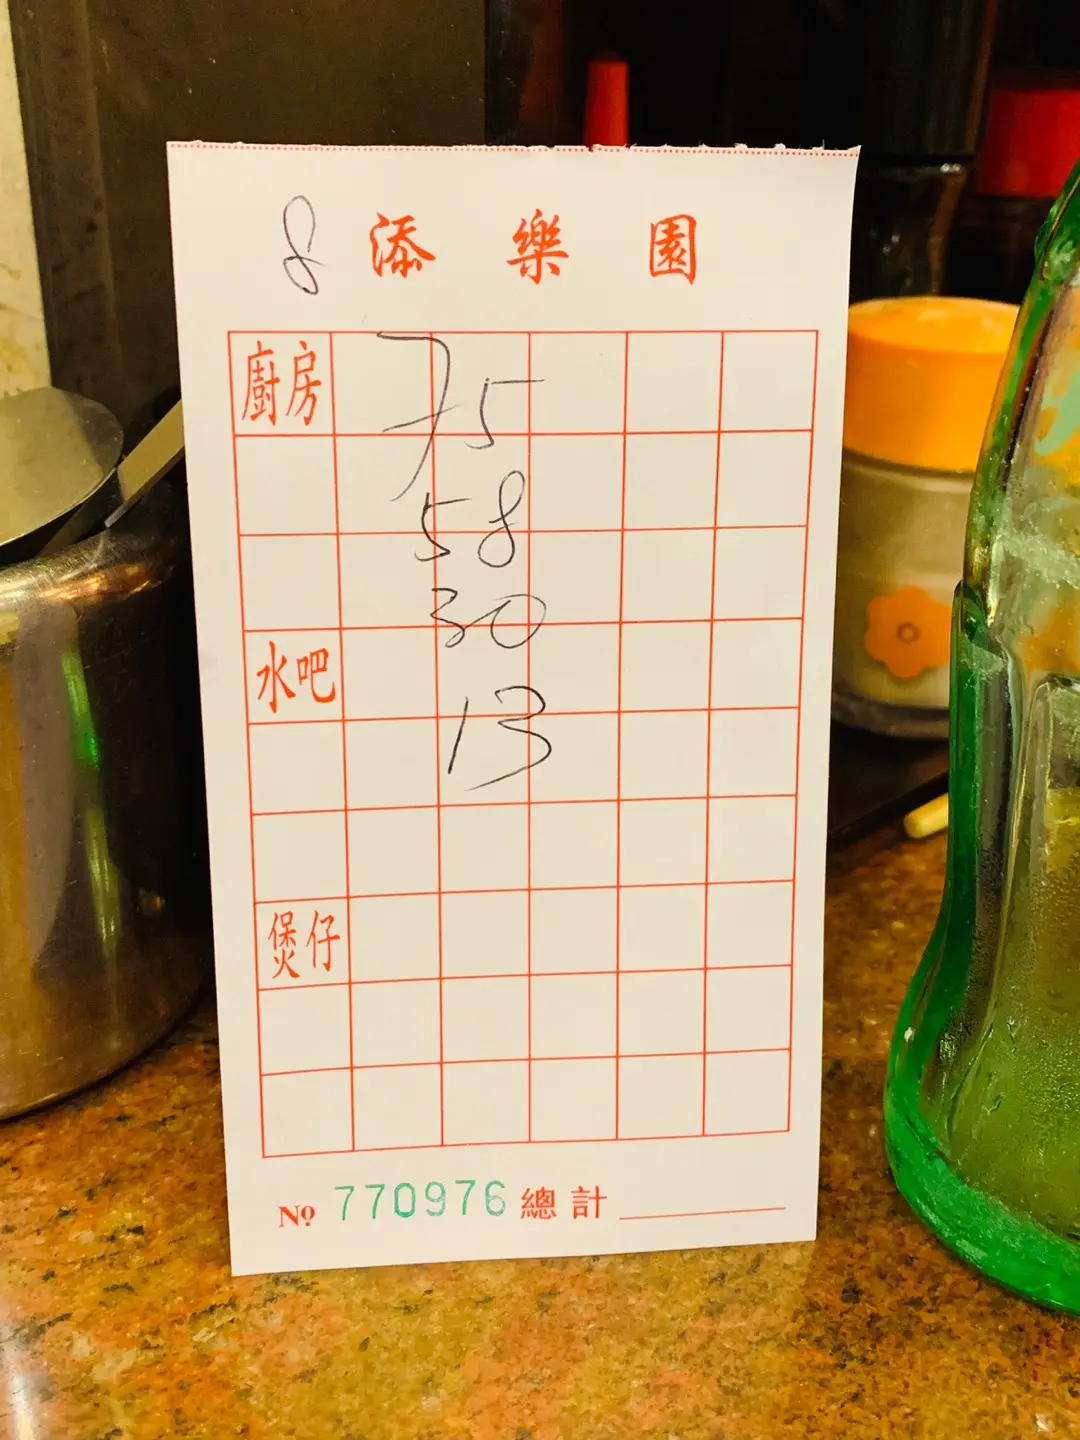 8 添樂園
廚房
75
58
30
水吧
13
煲仔
No 770976 總計